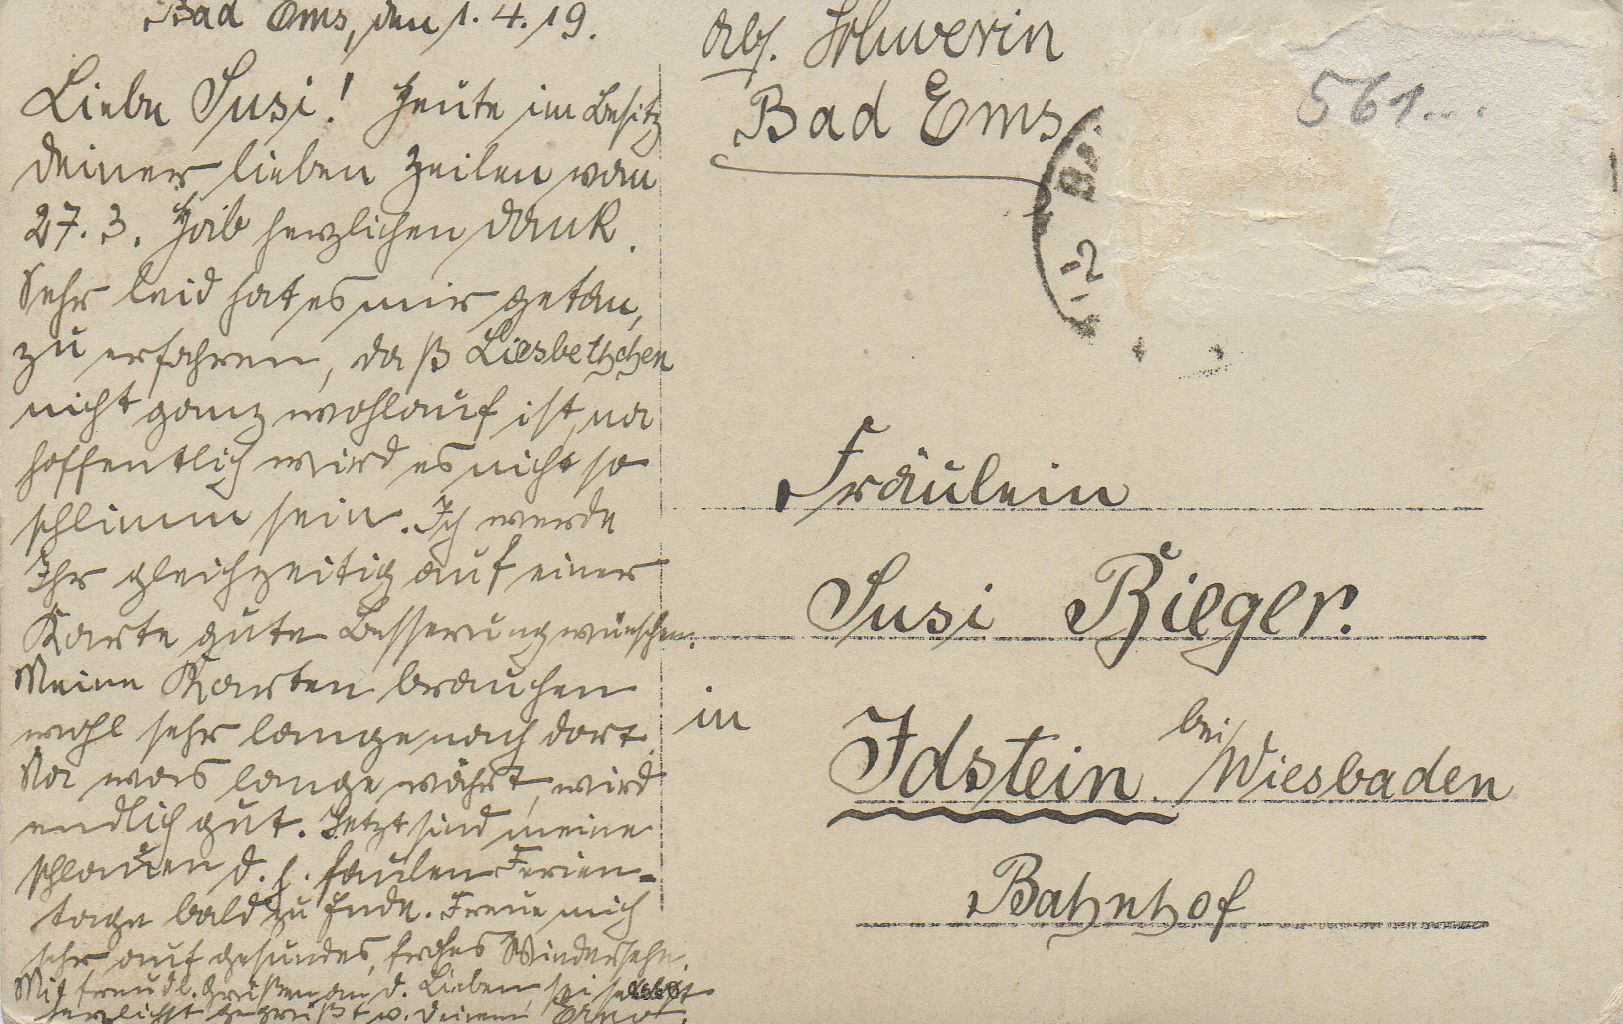 Bad Ems, den 1.4.19.
Liebe Susi! Heute im Besitz
Deiner lieben Zeilen vom
27.3. Hab herzlichen Dank.
Sehr leid hat es mir getan,
zu erfahren, daß Liesbethchen
nicht ganz wohlauf ist, na
hoffentlich wird es nicht so
schlimm sein. Ich werde
Ihr gleichzeitig auf einer
Karte gute Besserung wünschen.
Meine Karten brauchen
wohl sehr lange nach dort.
Na was lange währt, wird
endlich gut. Jetzt sind meine
schlauen d. h. faulen Ferien-
tage bald zu Ende. Freue mich
sehr auf gesundes, frohes Wiedersehn.
Mit freundl. Grüßen an d. Lieben, sei selbst
herzlichst gegrüßt v. Deinem Ernst.
Abs. Schwerin
Bad Ems
561...
Fräulein
Susi Bieger.
in Idstein bei Wiesbaden
Bahnhof